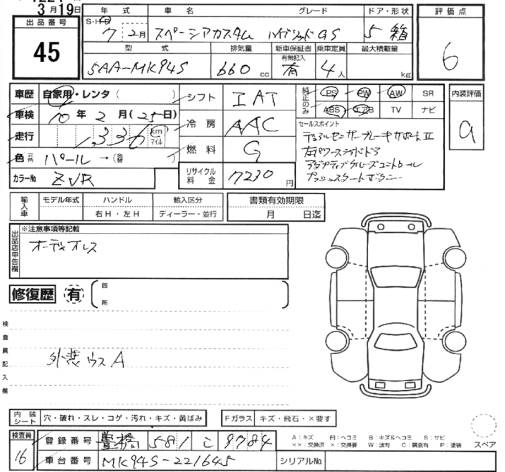 3月19日
出品番号
45
年式 車名 グレード ドア・形状
7 2月 スペーシアカスタム ハイブリッドGS 5 箱
型式 排気量 新車保証書 乗車定員 最大積載量
有無記入
5AA-MK94S 660cc 有 4人 kg
評価点
6
車歴 自家用・レンタ( )
車検 10年2月(25日)
走行 km マイル
色 パール → ( )
カラーNo ZVR
シフト IAT
冷房 AAC
燃料 G
リサイクル料金 7230円
純正品のみ PS PW AW SR
ABS エアB TV ナビ
セールスポイント
デュアルセンサーブレーキサポートⅡ
右パワースライドドア
アダプティブクルーズコントロール
プッシュスタートボタン
内装評価
a
輸入車 モデル年式 ハンドル 輸入区分
右H・左H ディーラー・並行
書類有効期限
月 日迄
出品店申告欄
※注意事項等記載
オーディオレス
修復歴 有 箇所
検査員記入欄
外装ウスA
内装シート 穴・破れ・スレ・コゲ・汚れ・キズ・黄ばみ
Fガラス キズ・飛石・×要す
検査員
16
登録番号 豊橋 581 こ 9784
車台番号 MK94S-221645
シリアルNo
A:キズ U:ヘコミ B:キズ&ヘコミ S:サビ
スペア